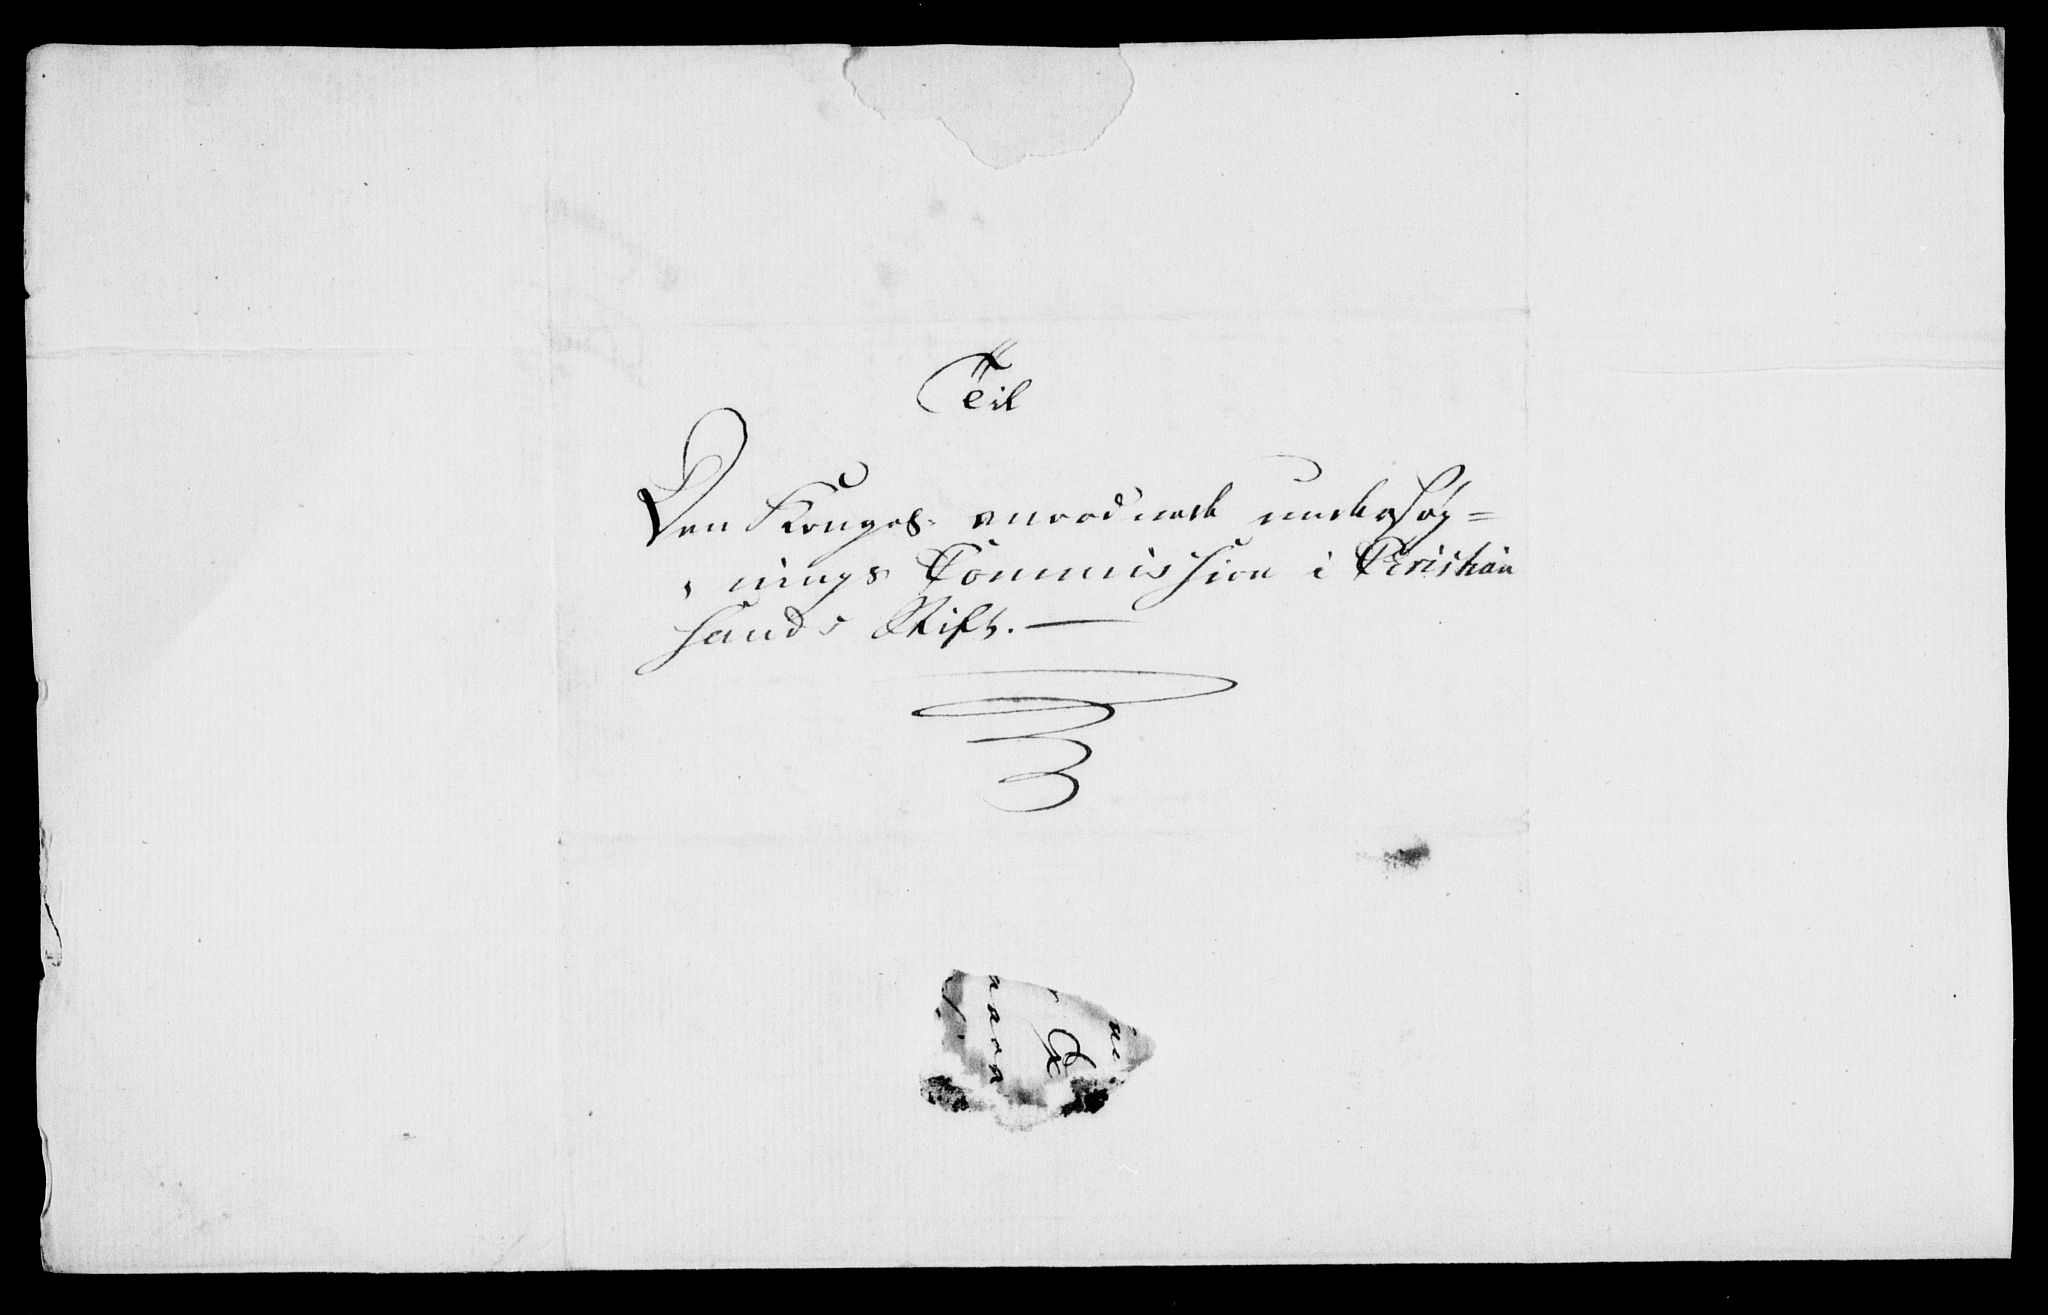 Til
Den Konges anordnede undersøg=
nings Commission i Christian
sands Stift.